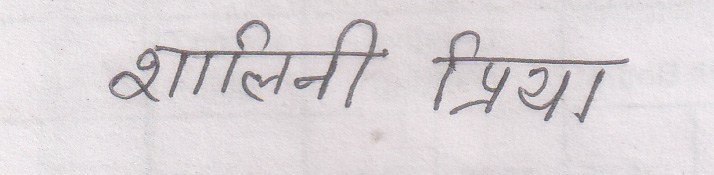 शालिनी प्रिया